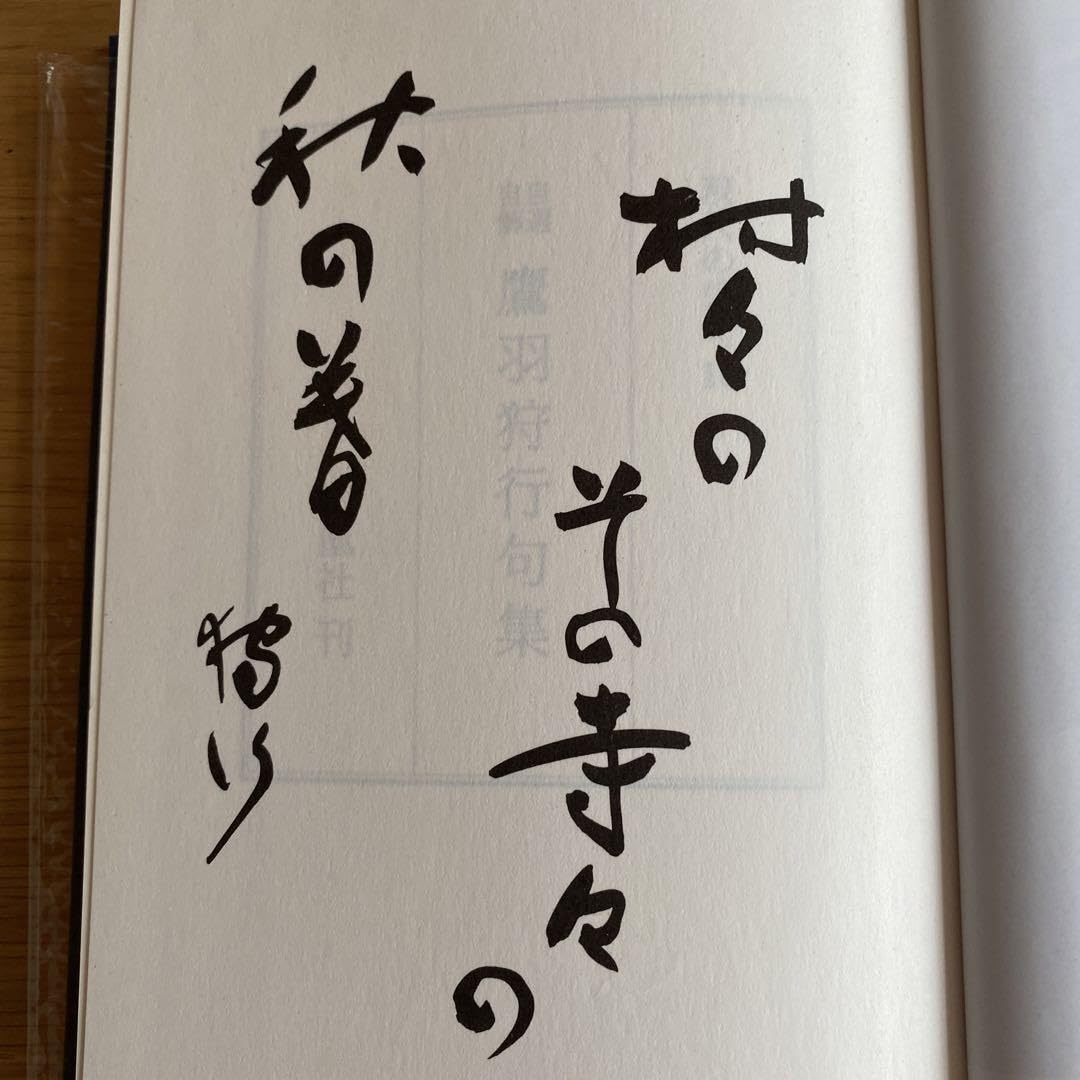 村々の
その寺々の
秋の暮
狩行
鷹羽狩行句集
社刊